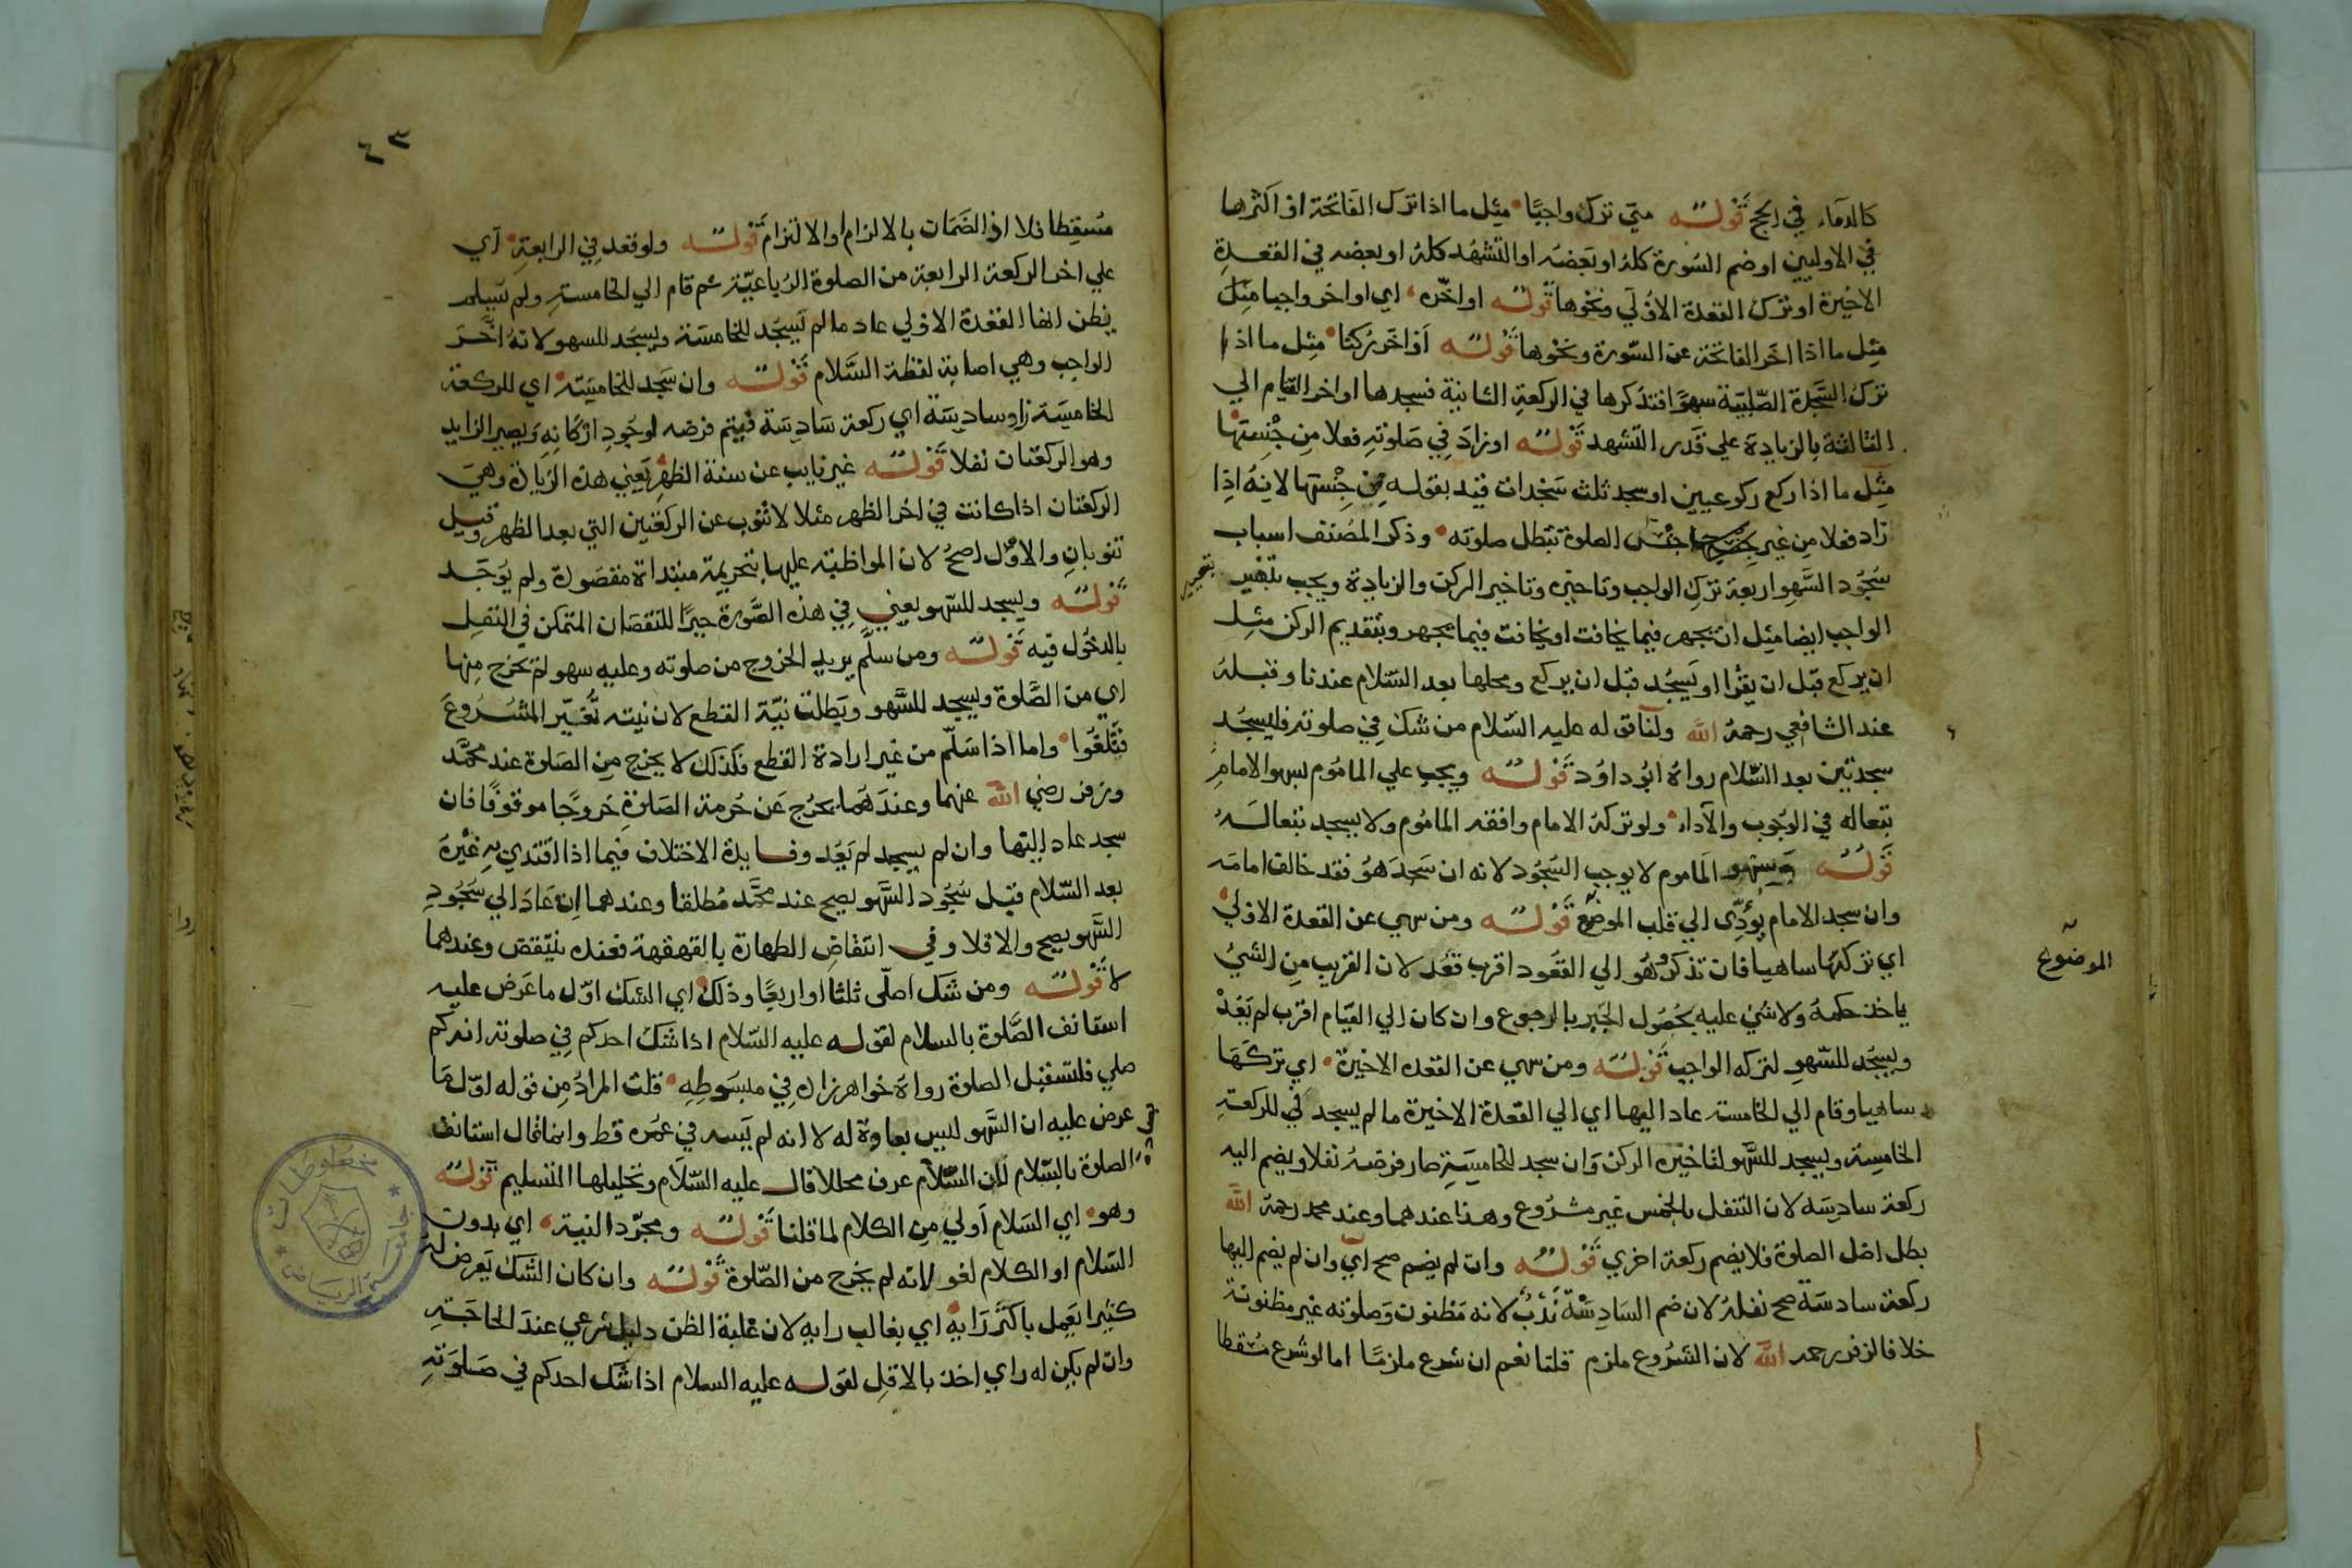 كالدماء في الحج قوله متى ترك واجبًا مثل ما اذا ترك الفاتحة او اكثرها
في الاوليين او ضم السورة كله او بعضه او التشهد كله او بعضه في القعدة
الاخيرة او ترك القعدة الاولى ونحوها قوله او اخّره اي او اخر واجبا مثل
مثل ما اذا اخر الفاتحة عن السورة ونحوها قوله او اخر ركنا مثل ما اذا
ترك السجدة الصلبية سهوا فتذكرها في الركعة الثانية فسجدها او اخر القيام الي
الثالثة بالزيادة علي قدر التشهد قوله او زاد في صلوته فعلا من جنسها
مثل ما اذا ركع ركوعين او سجد ثلث سجدات قيد بقوله من جنسها لانه اذا
زاد فعلا من غير جنس الصلوة تبطل صلوته وذكر المصنف اسباب
سجود السهو اربعة ترك الواجب وتاخيره وتاخير الركن والزيادة ويجب بتغيير
الواجب ايضا مثل ان يجهر فيما يخافت او يخافت فيما يجهر وبتقديم الركن مثل
ان يركع قبل ان يقرا او يسجد قبل ان يركع ومحلها بعد السلام عندنا وقبله
عند الشافعي رحمه الله ولنا قوله عليه السلام من شك في صلوته فليسجد
سجدتين بعد السلام رواه ابو داود قوله ويجب علي الماموم بسهو الامام
تبعاله في الوجوب والآداء ولو تركه الامام وافقه الماموم ولا يسجد تبعا له
قوله وسهو الماموم لا يوجب السجود لانه ان سجد هو فقد خالف امامه
وان سجد الامام يؤدّى الي قلب الموضع قوله ومن سهي عن القعدة الاولي
الموضوع
اي تركها ساهيا فان تذكر وهو الي القعود اقرب قعد لان القريب من الشيء
ياخذ حكمه ولا شئ عليه بحصول الجبر بالرجوع وان كان الي القيام اقرب لم يعد
ويسجد للسهو لتركه الواجب قوله ومن سهي عن القعده الاخيرة اي تركها
ساهيا وقام الي الخامسة عاد اليها اي الي القعدة الاخيرة ما لم يسجد في الركعة
الخامسة ويسجد للسهو لتاخيره الركن وان سجد للخامسة صار فرضه نفلا ويضم اليه
ركعة سادسة لان التنفل بالخمس غير مشروع وهذا عندهما وعند محمد رحمه الله
بطل اصل الصلوة فلا يضم ركعة اخري قوله وان لم يضم صح اي وان لم يضم اليها
ركعة سادسة صح نفله لان ضم السادسة ندب لانه مظنون وصلوته غير مظنونة
خلافا لزفر رحمه الله لان الشروع ملزم قلنا نعم ان شرع ملزمًا اما لو شرع مسقطا
٤٣
مسقطا فلا اذ الضمان بالالزام او الالتزام قوله ولو قعد في الرابعة اي
علي اخر الركعة الرابعة من الصلوة الرباعية ثم قام الي الخامسة ولم يسلم
يظن انها القعدة الاولي عاد ما لم يسجد للخامسة ويسجد للسهو لانه اخر
الواجب وهي اصابة لفظة السلام قوله وان سجد للخامسة اي للركعة
الخامسة زاد سادسة اي ركعة سادسة فيتم فرضه لوجود اركانه ويصير الزايد
وهو الركعتان نفلا قوله غير نايب عن سنة الظهر يعني هذه الزيادة وهي
الركعتان اذا كانت في اخر الظهر مثلا لا تنوب عن الركعتين التي بعد الظهر وقيل
تنوبان والاول اصح لان المواظبة عليها بتحريمة مبتداة مقصودة ولم يوجد
قوله ويسجد للسهو يعني في هذه الصورة جبرًا للنقصان المتمكن في النفل
بالدخول فيه قوله ومن سلم يريد الخروج من صلوته وعليه سهو لم يخرج منها
اي من الصلوة ويسجد للسهو وبطلت نية القطع لان نيته تغيّر المشروع
فتلغوا واما اذا سلّم من غير ارادة القطع فكذلك لا يخرج من الصلوة عند محمد
وزفر رضي الله عنهما وعندهما يخرج عن حرمة الصلوة خروجًا موقوفا فان
سجد عاد اليها وان لم يسجد لم يعد وفايدة الاختلاف فيما اذا اقتدي به غيره
بعد السلام قبل سجود السهو يصح عند محمد مطلقا وعندهما ان عاد الي سجود
السهو يصح والا فلا وفي انتقاض الطهارة بالقهقهة فعنده ينتقض وعندهما
لا قوله ومن شك اصلّى ثلثا او اربعًا وذلك اي الشك اوّل ما عرض عليه
استانف الصلوة بالسلام لقوله عليه السلام اذا شك احدكم في صلوته انه كم
صلي فليستقبل الصلوة رواه خواهرزاده في مبسوطه قلت المراد من قوله اوّل ما
عرض عليه ان السهو ليس بعادة له لا انه لم يسه في عمره قط وانما قال استانف
الصلوة بالسلام لان السلام عرف محللا قال عليه السلام وتحليلها التسليم قوله
وهو اي السلام اولي من الكلام لما قلنا قوله ومجرّد النية اي بدون
السلام او الكلام لغو لانه لم يخرج من الصلوة قوله وان كان الشك يعرض له
كثيرا يعمل باكثر رايه اي بغالب رايه لان غلبة الظن دليل شرعي عند الحاجة
وان لم يكن له راي اخذ بالاقل لقوله عليه السلام اذا شك احدكم في صلوته
مخطوطات
جامعة الرياض